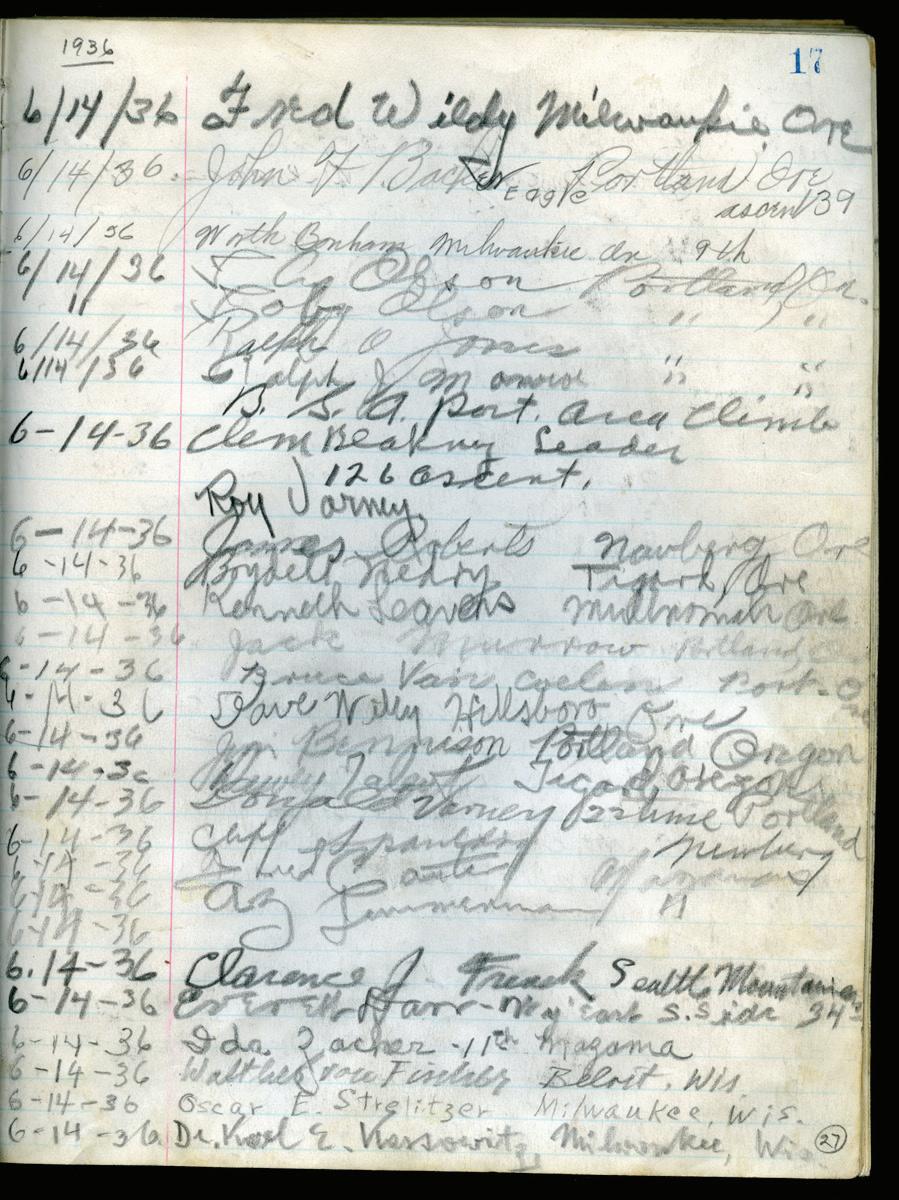 1936
17
6/14/36 Fred Wildy Milwaukie, Ore
6/14/36. John F Backer Eagle Portland Ore
ascent 39
6/14/36 Worth Bonham Milwaukie Or 9th
6/14/36 Cy Olson Portland, Or.
" Toby Olson " "
6/14/36 Ralph O Jones
6/14/36 Ralph J " "
B. S. A. Port. Area Climb
6-14-36 Clem Blakney Leader
126 ascent.
Roy Varney.
6-14-36 James Roberts Newberg Ore
6-14-36 Henry Tigard, Ore
6-14-36 Kenneth Seavers Multnomah Ore
6-14-36 Jack Murrow Portland,
6-14-36 Bruce Van Port-
6-14-36 Dave Willy Hillsboro, Ore
6-14-36 Jim Bennison Portland Oregon
6-14-36 Tigard, Oregon
6-14-36 Donald Varney 22 time Portland
6-14-36 Cliff Spaulding Newberg
6-14-36 Fred
6-14-36 Zimmerman "
6-14-36
6.14-36 Clarence J. French Seattle Mountaineers
6-14-36 Everett Darr-May East S. Side 34
6-14-36 Ida Zacher - 11th Mazama
6-14-36 Walther von Beloit. Wis
6-14-36 Oscar E. Strelitzer Milwaukee, Wis.
6-14-36 Dr. Karl E. Kassowitz, Milwaukee, Wis.
27